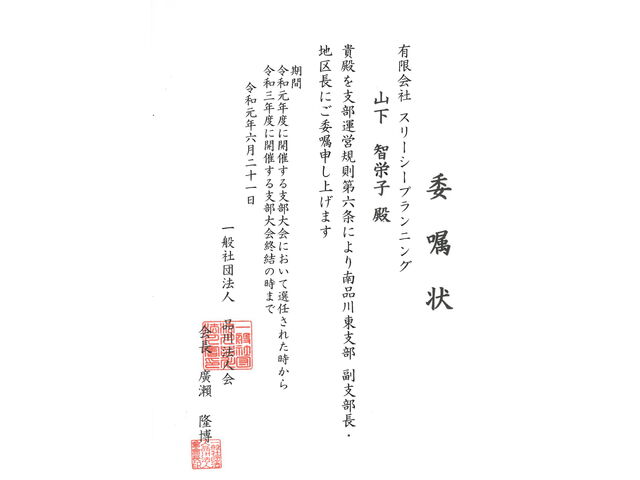 委嘱状
有限会社 スリーシープランニング
山下 智栄子 殿
貴殿を支部運営規則第六条により南品川東支部 副支部長・
地区長にご委嘱申し上げます
期間
令和元年度に開催する支部大会において選任された時から
令和三年度に開催する支部大会終結の時まで
令和元年六月二十一日
一般社団法人 品川法人会
会長 廣瀬 隆博